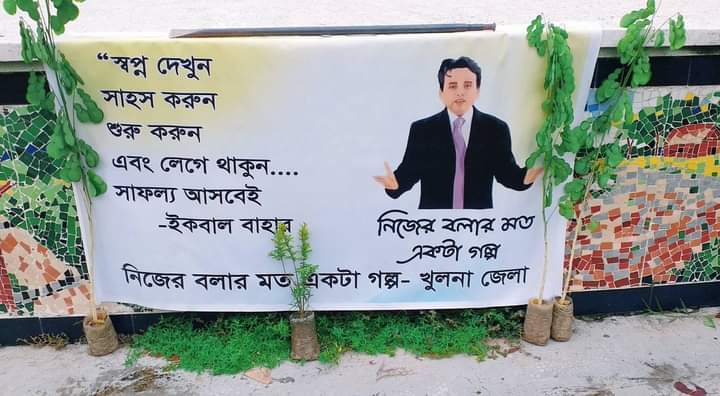 “স্বপ্ন দেখুন
সাহস করুন
শুরু করুন
এবং লেগে থাকুন....
সাফল্য আসবেই
-ইকবাল বাহার
নিজের বলার মত
একটা গল্প
নিজের বলার মত একটা গল্প- খুলনা জেলা